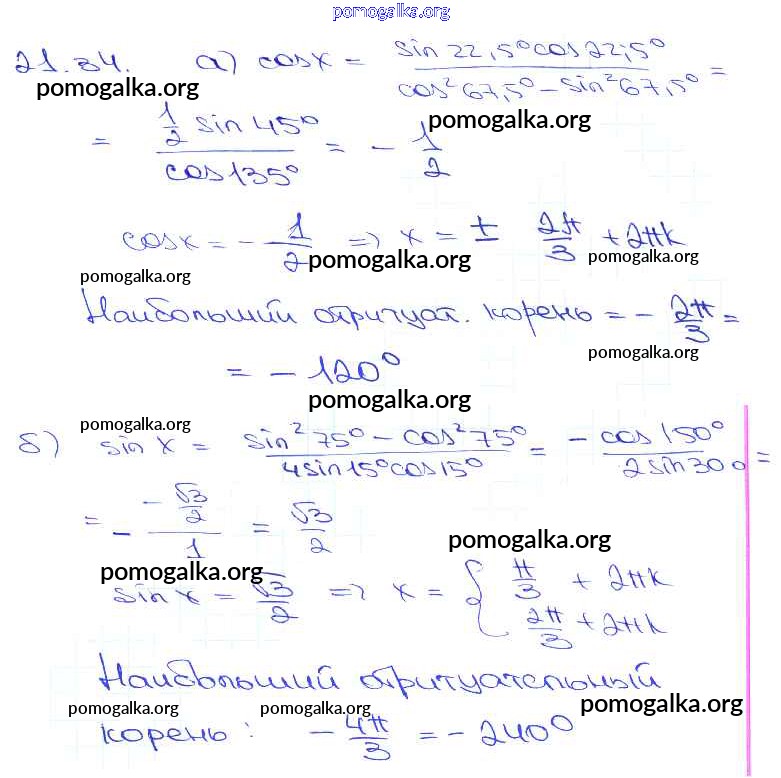 pomogalka.org
21.34. а) cosx = sin22,5°cos22,5° / cos²67,5° - sin²67,5° =
pomogalka.org
pomogalka.org
= 1/2 sin 45° / cos135° = - 1/2
cosx = - 1/2 => x = ± 2π/3 + 2πk
pomogalka.org pomogalka.org pomogalka.org
Наибольший отрицат. корень = - 2π/3 =
pomogalka.org
= - 120°
pomogalka.org
pomogalka.org
б) sin x = sin²75° - cos²75° / 4sin15°cos15° = - cos150° / 2sin30° =
= - -√3/2 / 1 = √3/2
pomogalka.org
pomogalka.org
sin x = √3/2 => x = { π/3 + 2πk
2π/3 + 2πk
Наибольший отрицательный
pomogalka.org pomogalka.org pomogalka.org
корень: - 4π/3 = - 240°